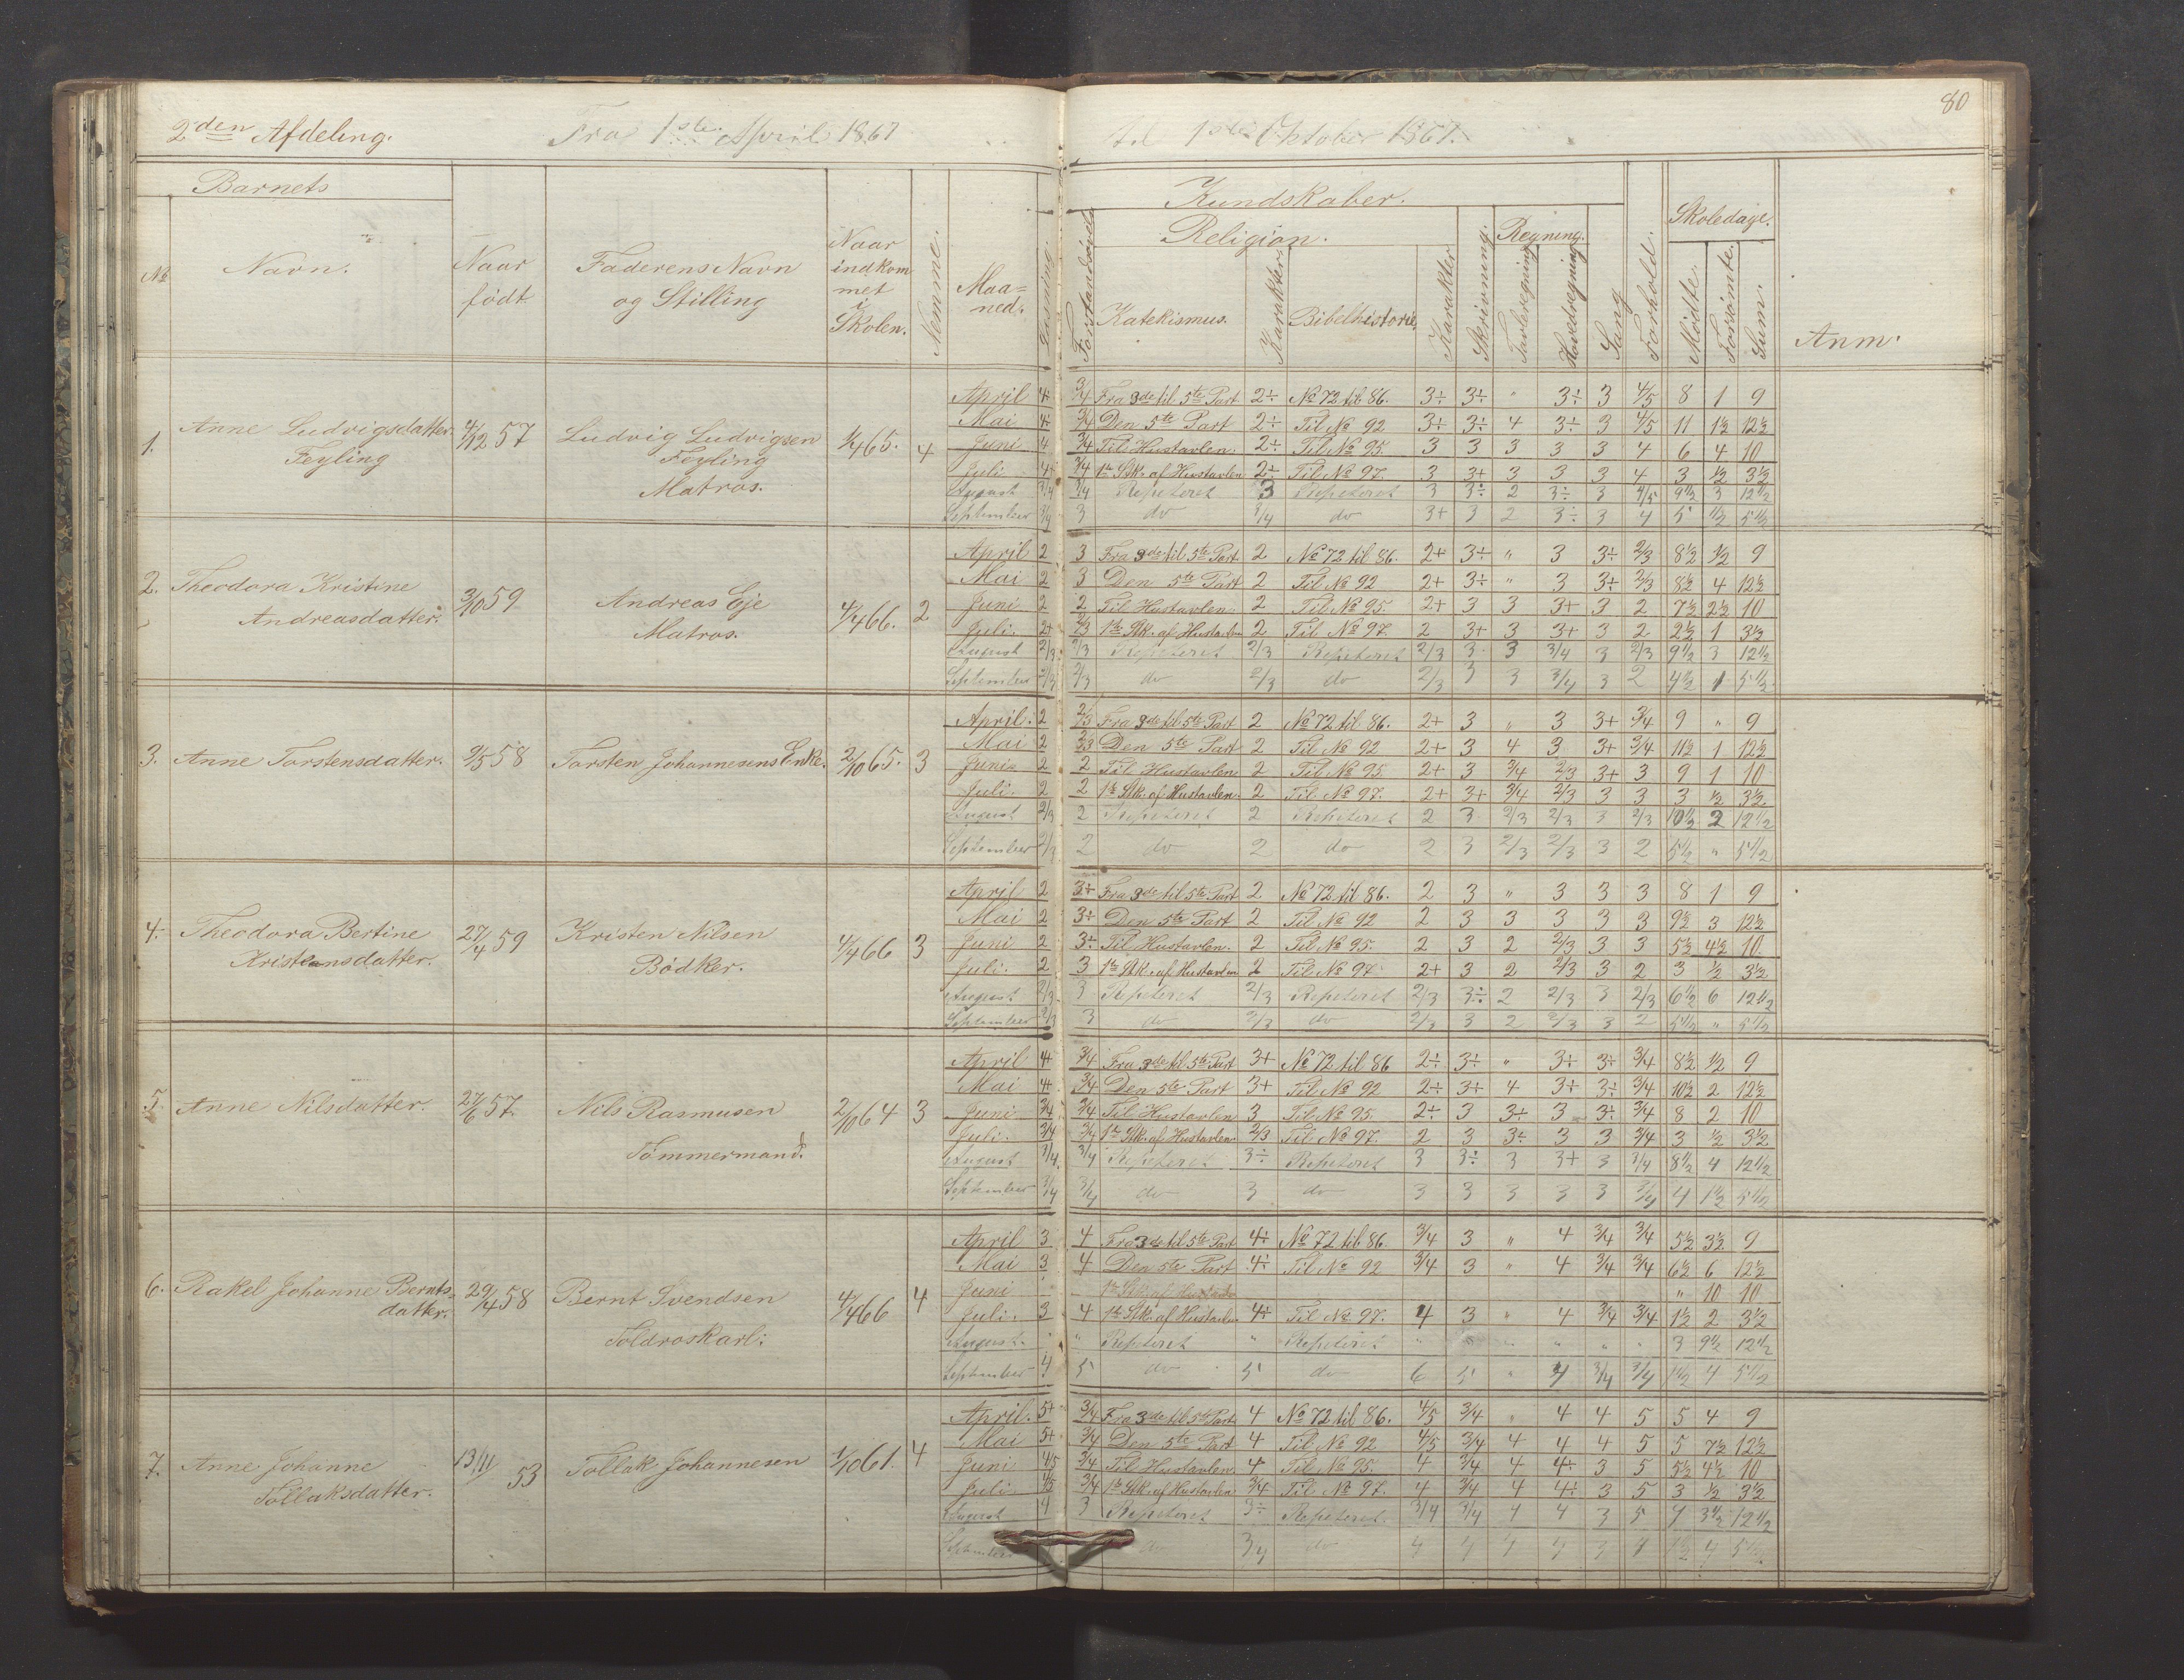 80
2den Afdeling. Fra 1ste April 1867 til 1ste Oktober 1867.
Barnets
Kundskaber.
Skoledage.
Religion. Regning.
No Navn. Naar født Faderens Navn og Stilling Naar indkommet i Skolen. Nemme. Maaned. Læsning. Forstandsøvelse Katekismus. Karakter Bibelhistorie, Karakter Skrivning. Tavleregning Hovedregning Sang Forhold. Mødte. Forsømte. Sum. Anm.
1. Anne Ludvigsdatter Feyling 4/12 57 Ludvig Ludvigsen Feyling Matros. 1/4 65. 4
April 4÷ 3/4 Fra 3de til 5te Part 2÷ No 72 til 86. 3÷ 3÷ " 3÷ 3 4/5 8 1 9
Mai 4÷ 3/4 Den 5te Part 2÷ Til No 92 3÷ 3÷ 4 3÷ 3 4/5 11 1½ 12½
Juni 4 3/4 Til Hustavlen 2÷ Til No 95. 3 3 3 3 3 4 6 4 10
Juli 4+ 3/4 1te Stk. af Hustavlen 2÷ Til No 97. 3 3+ 3 3 3 4 3 ½ 3½
August 3/4 3/4 Repeteret 3 Repeteret 3 3÷ 2 3÷ 3 4/5 9½ 3 12½
September 3/4 3 do 3/4 do 3+ 3 2 3÷ 3 4 5 ½ 5½
2. Theodora Kristine Andreasdatter. 3/10 59 Andreas Eje Matros. 4/4 66. 2
April 2 3 Fra 3de til 5te Part 2 No 72 til 86. 2+ 3÷ " 3 3÷ 2/3 8½ ½ 9
Mai 2 3 Den 5te Part 2 Til No 92 2+ 3÷ " 3 3÷ 2/3 8½ 4 12½
Juni 2 2 Til Hustavlen 2 Til No 95. 2+ 3 3 3+ 3 2 7½ 2½ 10
Juli. 2+ 2/3 1te Stk. af Hustavlen 2 Til No 97. 2 3+ 3 3+ 3 2 2½ 1 3½
August 2/3 2/3 Repeteret 2/3 Repeteret 2/3 3 3 3/4 3 2/3 9½ 3 12½
September 2/3 2/3 do 2/3 do 2/3 3 3 3/4 3 2 4½ 1 5½
3. Anne Torstensdatter. 9/5 58 Torsten Johannesens Enke. 2/10 65. 3
April. 2 2/3 Fra 3de til 5te Part 2 No 72 til 86. 2+ 3 " 3 3+ 3/4 9 " 9
Mai 2 2/3 Den 5te Part 2 Til No 92 2+ 3 4 3 3+ 3/4 11½ 1 12½
Juni 2 2 Til Hustavlen 2 Til No 95 2+ 3 3/4 2/3 3+ 3 9 1 10
Juli. 2 2 1te Stk. af Hustavlen. 2 Til No 97. 2+ 3+ 3/4 2/3 3 3 3 ½ 3½
August 2/3 2 Repeteret 2 Repeteret 2 3 2/3 2/3 3 2/3 10½ 2 12½
September 2/3 2 do 2 do 2 3 2/3 2/3 3 2 5½ " 5½
4. Theodora Bertine Kristensdatter. 27/4 59 Kristen Nilsen Bödker. 4/4 66 3
April 2 3+ Fra 3de til 5te Part 2 No 72 til 86. 2 3 " 3 3 3 8 1 9
Mai 2 3÷ Den 5te Part 2 Til No 92 2 3 3 3 3 3 9½ 3 12½
Juni 2 3÷ Til Hustavlen. 2 Til No 95. 2 3 2 2/3 3 3 5½ 4½ 10.
Juli. 2 3 1te Stk. af Hustavlen 2 Til No 97. 2+ 3 2 2/3 3 2 3 ½ 3½
August 2/3 3 Repeteret 2/3 Repeteret 2/3 3÷ 2 2/3 3 2/3 6½ 6 12½
September 2/3 3 do 2/3 do 2/3 3 2 2/3 3 2 5½ " 5½
5. Anne Nilsdatter. 27/6 57. Nils Rasmusen Tömmermand. 2/10 64 3
April 4+ 3/4 Fra 3de til 5te Part 3+ No 72 til 86 2÷ 3÷ " 3÷ 3÷ 3/4 8½ ½ 9
Mai 4+ 3/4 Den 5te Part 3+ Til No 92 2÷ 3+ 4 3+ 3÷ 3/4 10½ 2 12½
Juni 3/4 3/4 Til Hustavlen 3 Til No 95. 2÷ 3 3÷ 3 3÷ 3/4 8 2 10
Juli. 3/4 3/4 1te Stk. af Hustavlen. 2/3 Til No 97. 2 3 3÷ 3 3 3/4 3 ½ 3½
August 3/4 3/4 Repeteret 3÷ Repeteret 3 3÷ 3 3+ 3 3/4 8½ 4 12½
September 3/4 3/4 do 3 do 3 3 3 3 3 3/4 4 1½ 5½
6. Rakel Johanne Berntsdatter. 29/4 58 Bernt Svendsen Toldroskarl. 4/4 66 4
April 3 4 Fra 3de til 5te Part 4÷ No 72 til 86. 3/4 3 " 4 3/4 3/4 5½ 3½ 9
Mai 3 4 Den 5te Part 4÷ Til No 92 3/4 3 " 4 3/4 3/4 6½ 6 12½
Juni " 10 10
Juli. 3 4 1te Stk. af Hustavlen 4+ Til No 97. 4 3 " 4 3/4 3/4 1½ 2 3½
August. " Repeteret " Repeteret " " " " " 3 9½ 12½
September 4 5 do 5 do 6 5 " 4 3/4 3/4 1½ 4 5½
7. Anne Johanne Tollaksdatter. 13/11 53 Tollak Johannesen 1/10 61. 4
April. 5+ 3/4 Fra 3de til 5te Part 4 No 72 til 86. 4/5 3/4 " 4 4 5 5 4 9
Mai 5+ 3/4 Den 5te Part 4 Til No 92 4/5 3/4 4 4 4 5 5 7½ 12½
Juni 4/5 3/4 Til Hustavlen 4 Til No 95. 4 3/4 4 4÷ 3 5 5½ 4½ 10
Juli. 4/5 3/4 1te Stk. af Hustavlen 3/4 Til No 97. 4 3/4 4 4÷ 3 5 3 ½ 3½
August 4 3 Repeteret 3÷ Repeteret. 3/4 3/4 4 4 3 5 9 3½ 12½
September do 3/4 do 4 4 4 4 3 4 1½ 4 5½